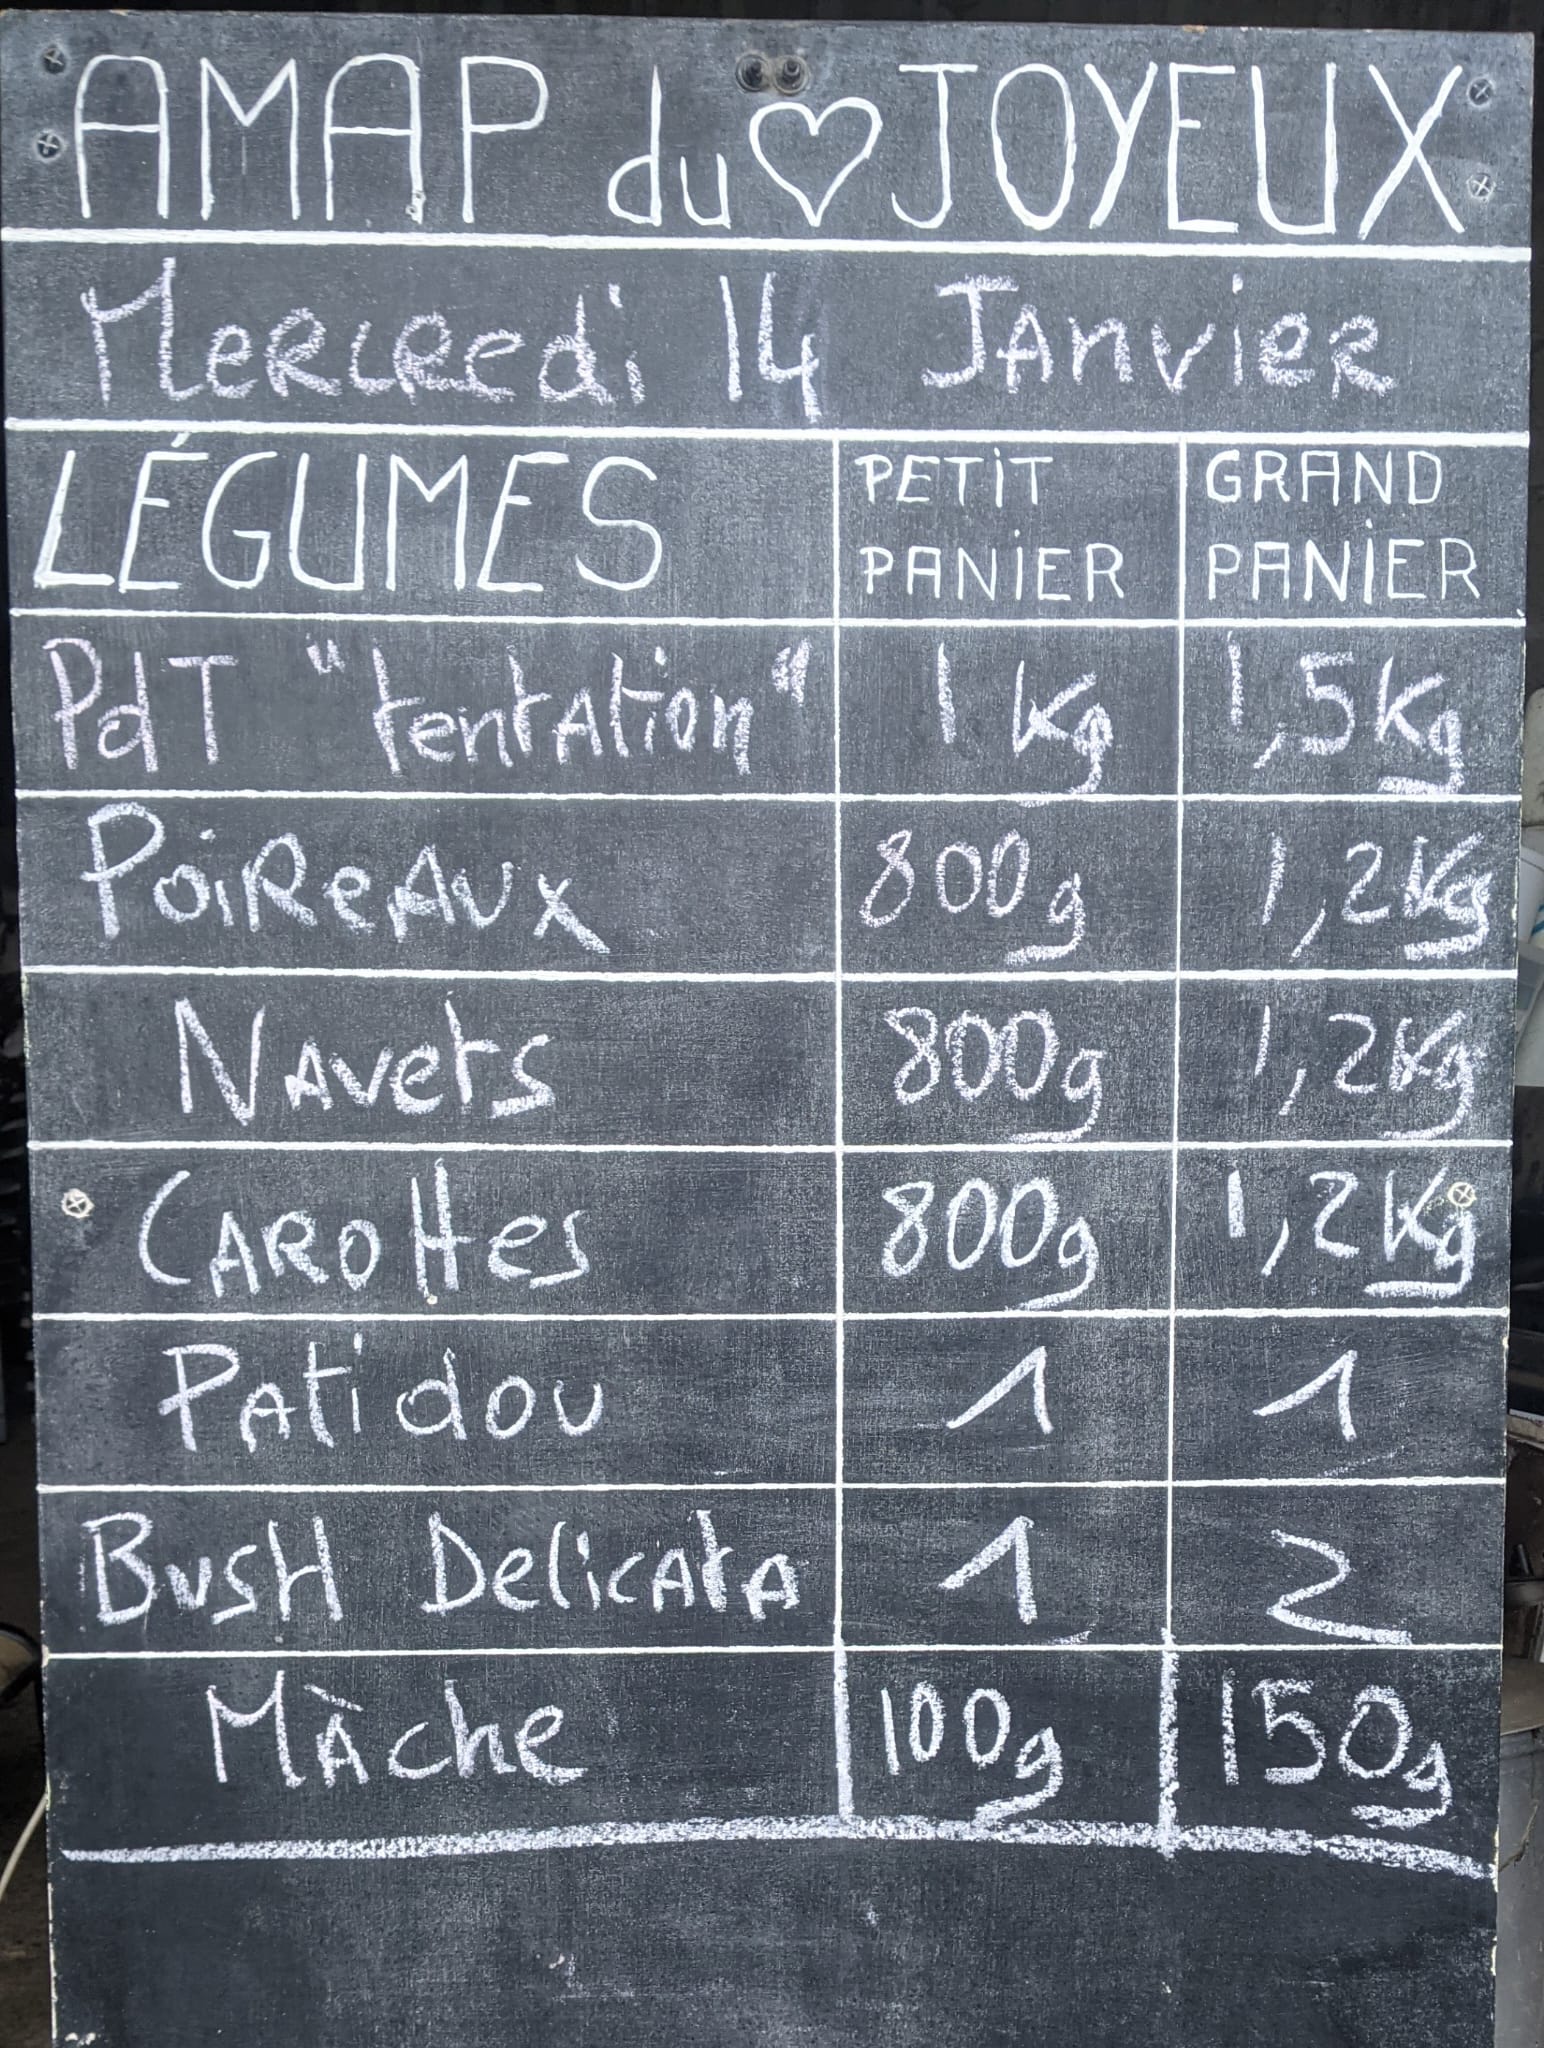 AMAP du ♡ JOYEUX
Mercredi 14 Janvier
LÉGUMES PETIT PANIER GRAND PANIER
PdT "tentation" 1 Kg 1,5Kg
Poireaux 800g 1,2Kg
Navets 800g 1,2Kg
Carottes 800g 1,2Kg
Patidou 1 1
Bush Delicata 1 2
Màche 100g 150g